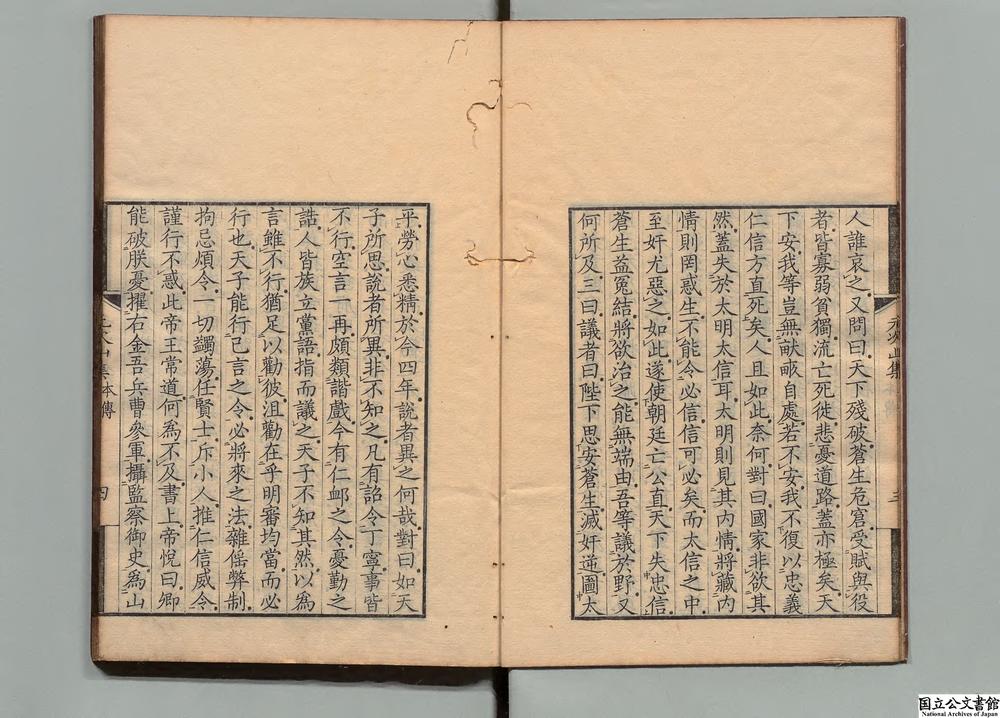 人誰哀之又問曰天下殘破蒼生危窘受賦與役
者皆寡弱貧獨流亡死徙悲憂道路蓋亦極矣天
下安我等豈無畎畝自處若不安我不復以忠義
仁信方直死矣人且如此奈何對曰國家非欲其
然蓋失於太明太信耳太明則見其內情將藏內
情則罔惑生不能令必信信可必矣而太信之中
至奸尤惡之如此遂使朝廷亡公直天下失忠信
蒼生益冤結將欲治之能無端由吾等議於野又
何所及三曰議者曰陛下思安蒼生滅奸逆圖太
平勞心悉精於今四年說者異之何哉對曰如天
子所思說者所異非不知之凡有詔令丁寧事皆
不行空言一再頗類諧戲今有仁䘏之令憂勤之
誥人皆族立黨語指而議之天子不知其然以為
言雖不行猶足以勸彼沮勸在乎明審均當而必
行也天子能行已言之令必將來之法雜徭弊制
拘忌煩令一切蠲蕩任賢士斥小人推仁信威令
謹行不惑此帝王常道何爲不及書上帝悅曰卿
能破朕憂擢右金吾兵曹參軍攝監察御史為山
元次山集 本傳 四
国立公文書館
National Archives of Japan